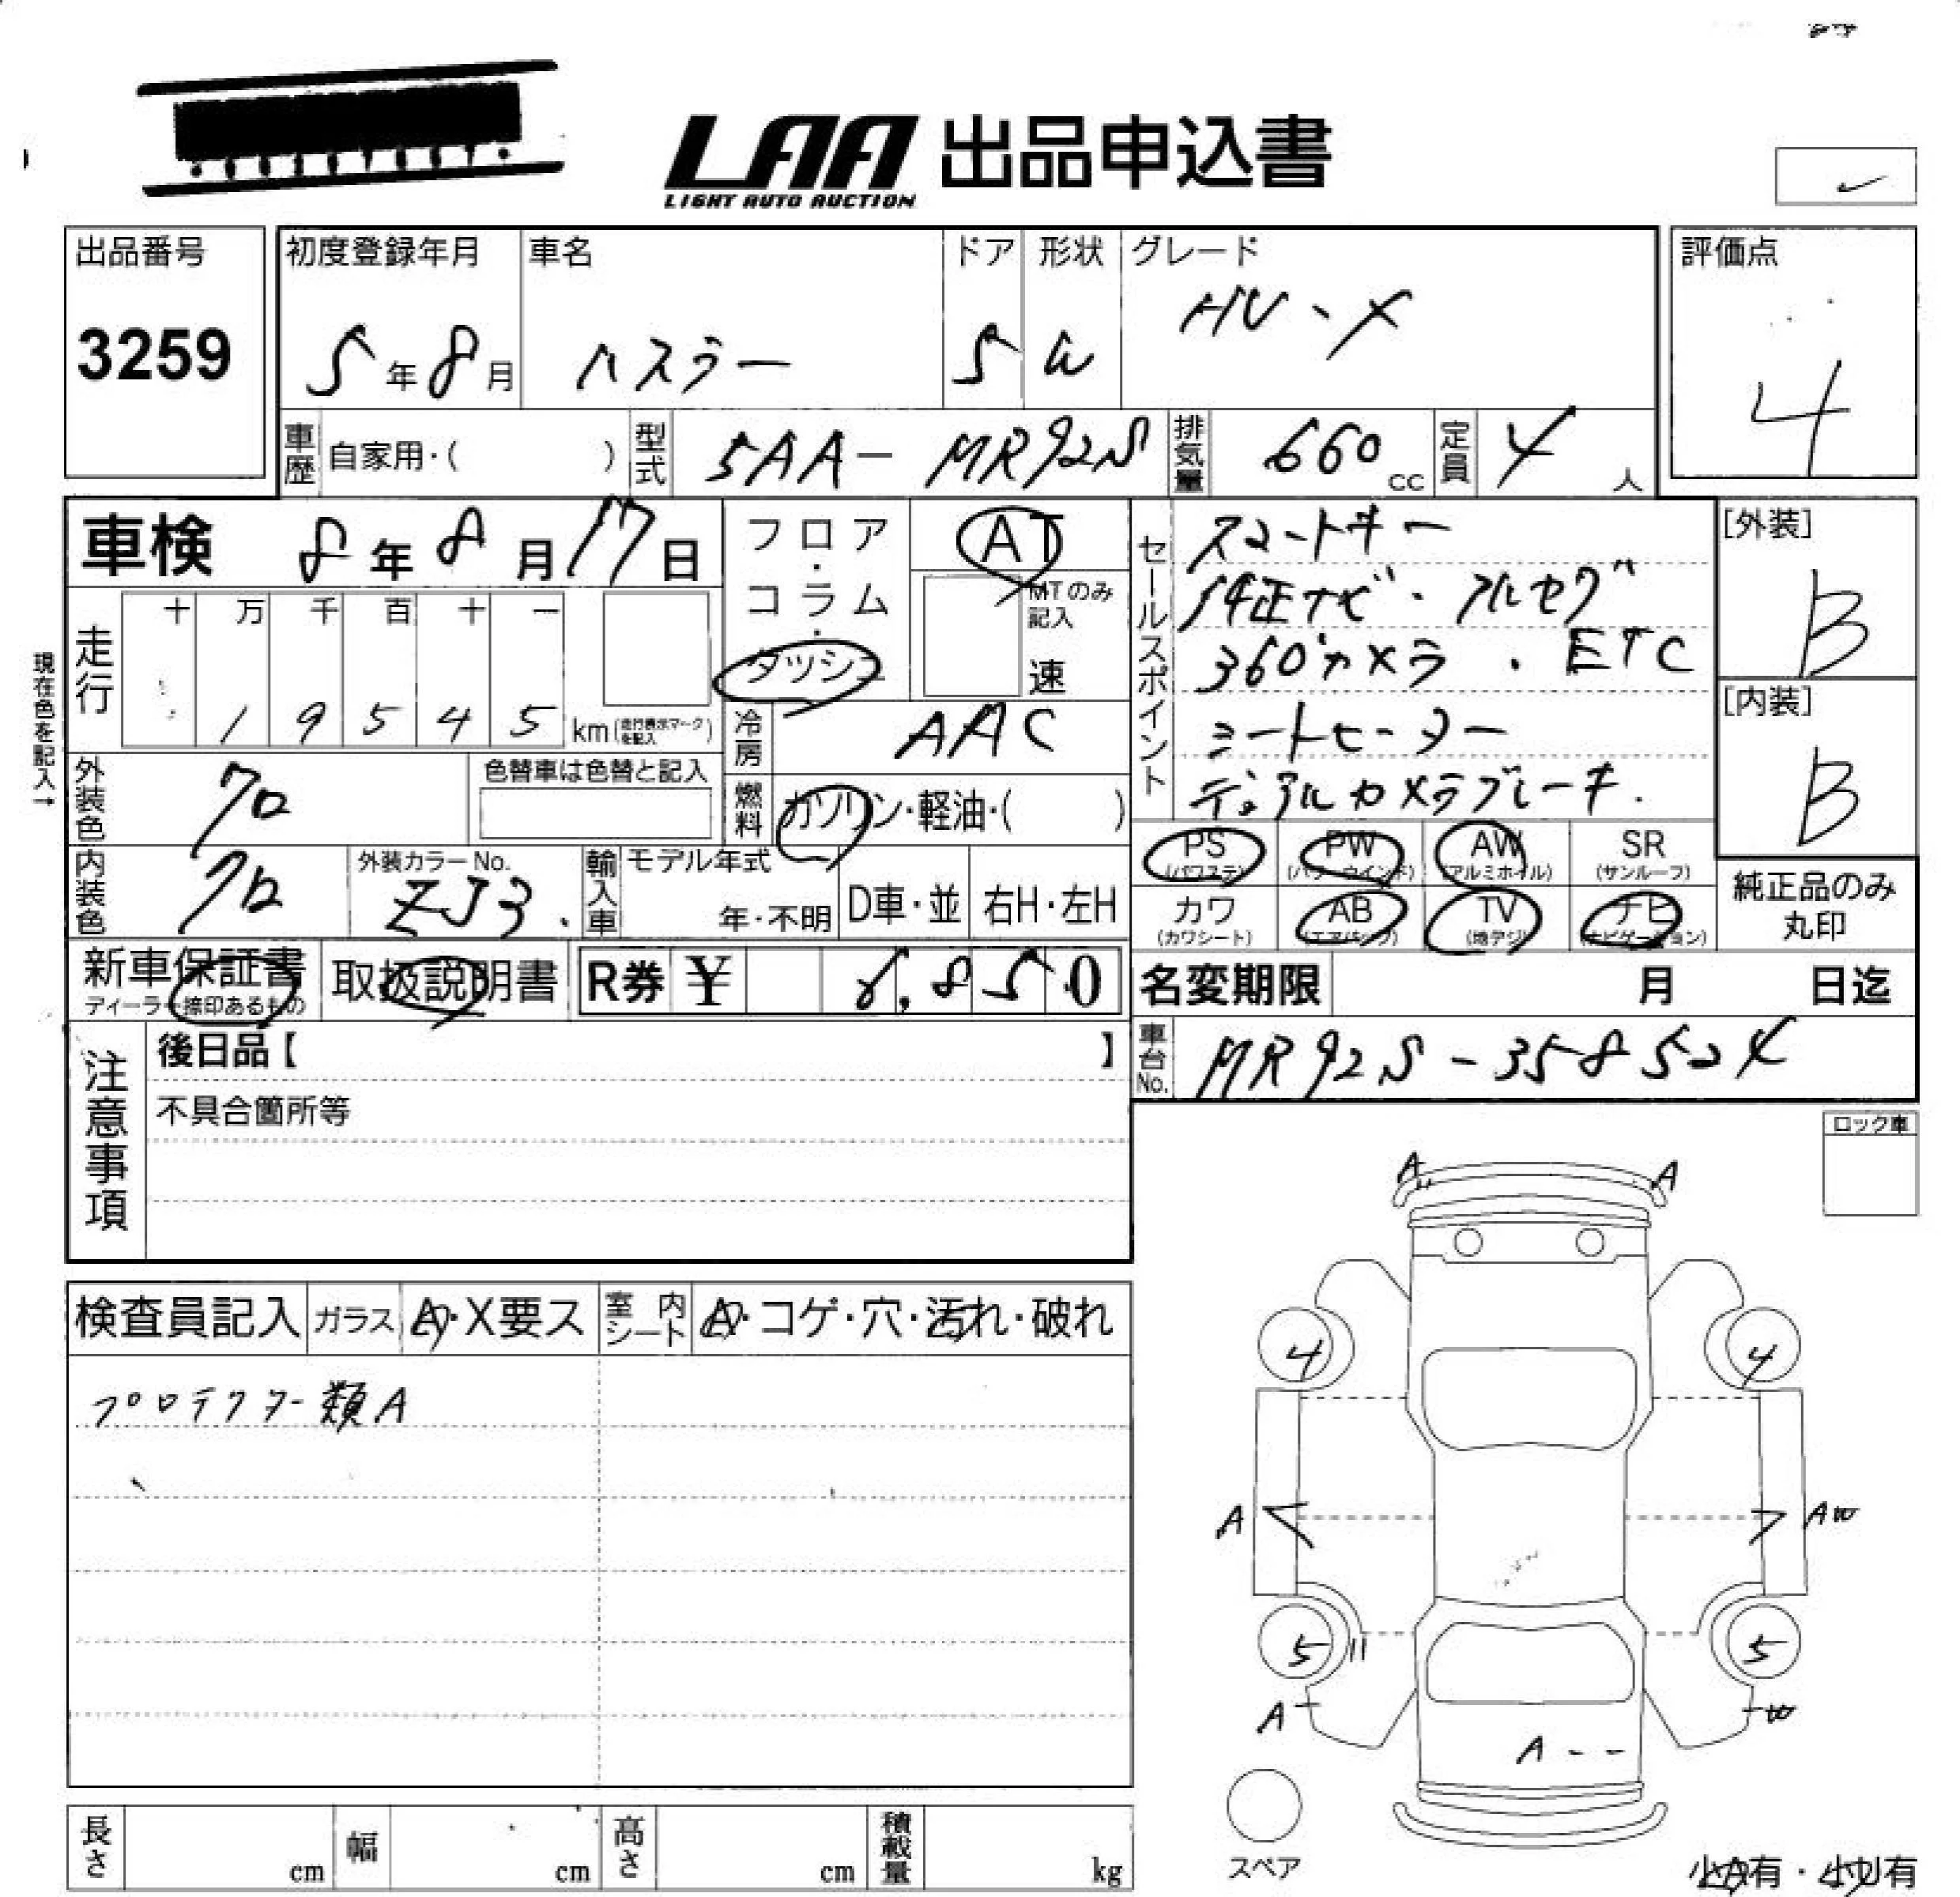 LAA 出品申込書
LIGHT AUTO AUCTION
出品番号
3259
初度登録年月
5年8月
車名
ハスラー
ドア
5
形状
W
グレード
HV・X
評価点
4
車歴 自家用・( )
型式 5AA-MR92S
排気量 660cc
定員 4人
車検 8年8月17日
フロア・コラム・ダッシュ
AT
MTのみ記入
速
現在色を記入→
走行
十 万 千 百 十 一
1 9 5 4 5 km(走行表示マークを記入)
冷房 AAC
燃料 ガソリン・軽油・( )
外装色 クロ
色替車は色替と記入
内装色 クロ
外装カラーNo.
ZJ3.
輸入車 モデル年式
年・不明
D車・並
右H・左H
セールスポイント
スマートキー
純正ナビ・フルセグ
360°カメラ・ETC
シートヒーター
デュアルカメラブレーキ.
[外装]
B
[内装]
B
PS (パワステ)
PW (パワーウインド)
AW (アルミホイル)
SR (サンルーフ)
カワ (カワシート)
AB (エアバッグ)
TV (地デジ)
ナビ (ナビゲーション)
純正品のみ丸印
新車保証書
ディーラー捺印あるもの
取扱説明書
R券 ¥ 8,850
名変期限 月 日迄
車台No. MR92S-358524
注意事項
後日品【 】
不具合箇所等
ロック車
検査員記入
ガラス A・X要ス
室内シート A・コゲ・穴・汚れ・破れ
プロテクター類A
A
A
4
4
A
AW
5
5
A
W
A
スペア
長さ cm
幅 cm
高さ cm
積載量 kg
小A有・小凹有